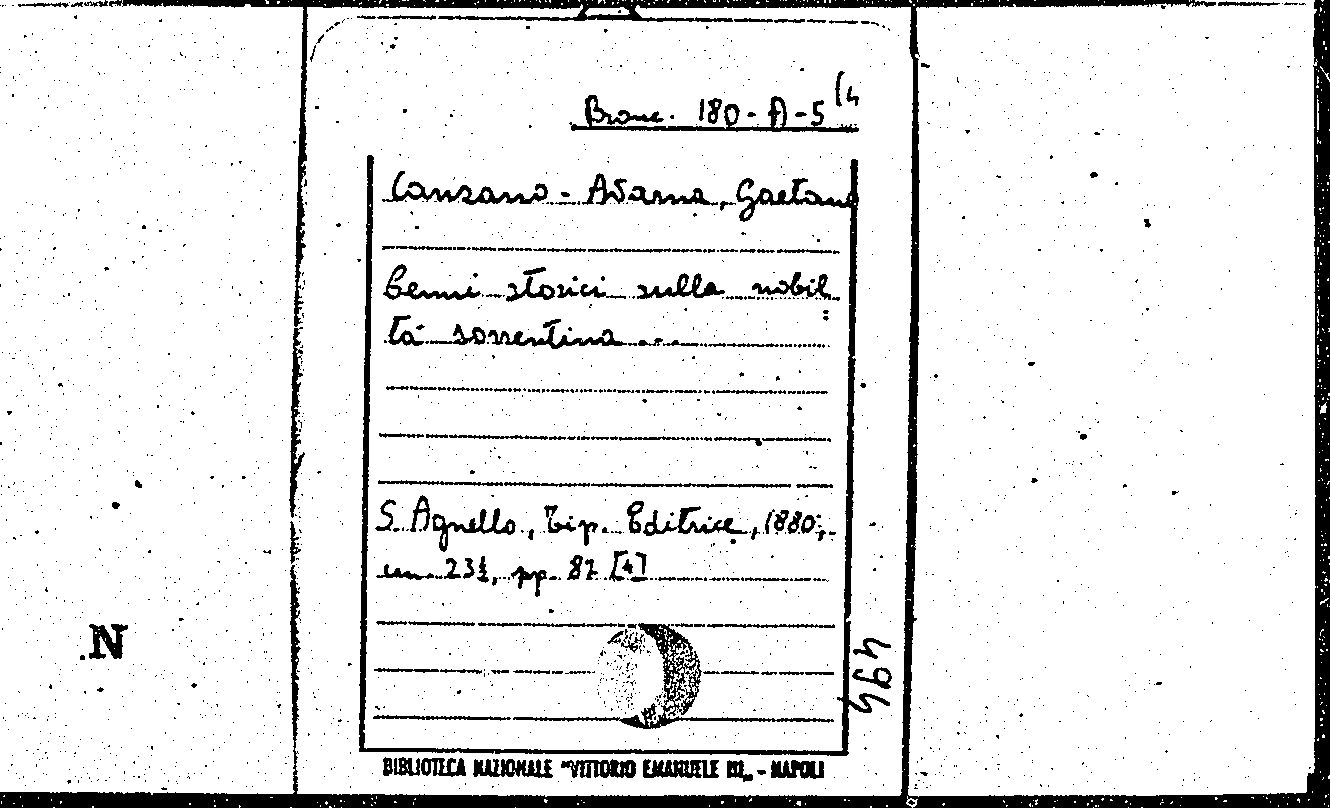 Branc. 180-A-5 (4
Canzano-Avarna, Gaetano
Cenni storici sulla nobil=
tà sorrentina ...
S. Agnello, Tip. Editrice, 1880;
cm. 23½, pp. 87 [4]
494
.N
BIBLIOTECA NAZIONALE "VITTORIO EMANUELE III„ - NAPOLI